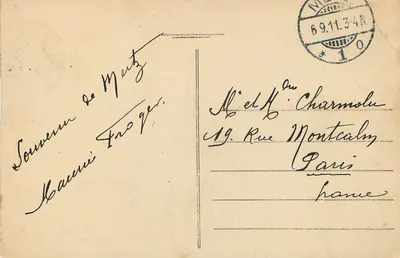 Souvenir de Metz
Maurice Froger.
6 9.11.3-4N
* 1 o
Mr et Mme Charmolu
19. Rue Montcalm
Paris
France